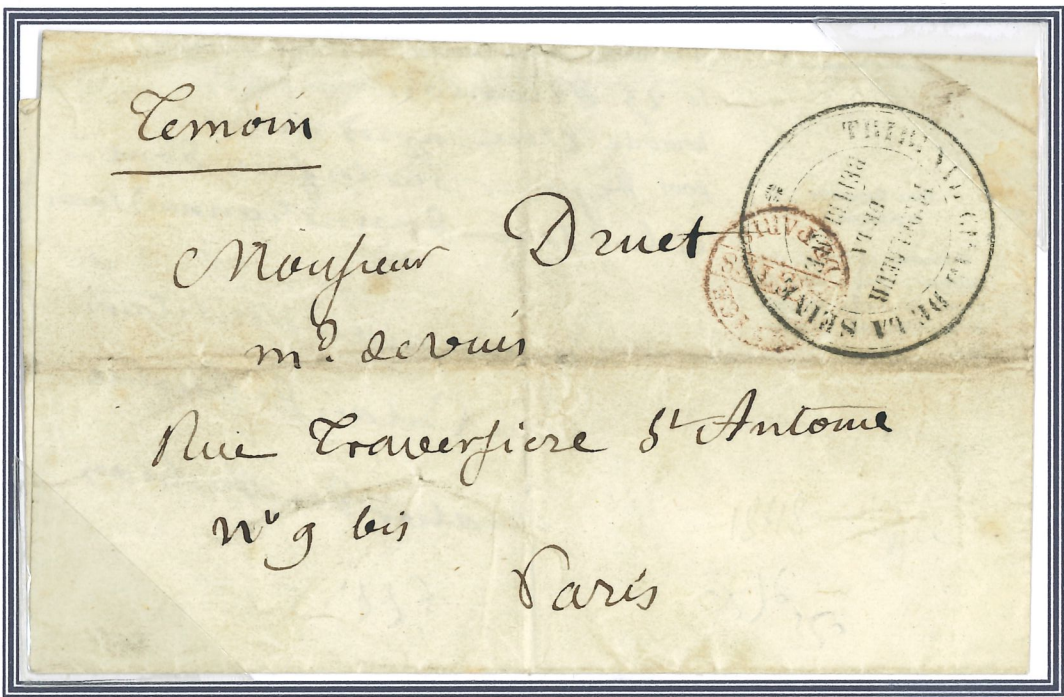 Temoin
Monsieur Druet
md. de vins
Rue Traversiere St Antoine
No 9 bis
Paris
TRIBUNAL CIVIL DE LA SEINE
PROCUREUR
DE LA